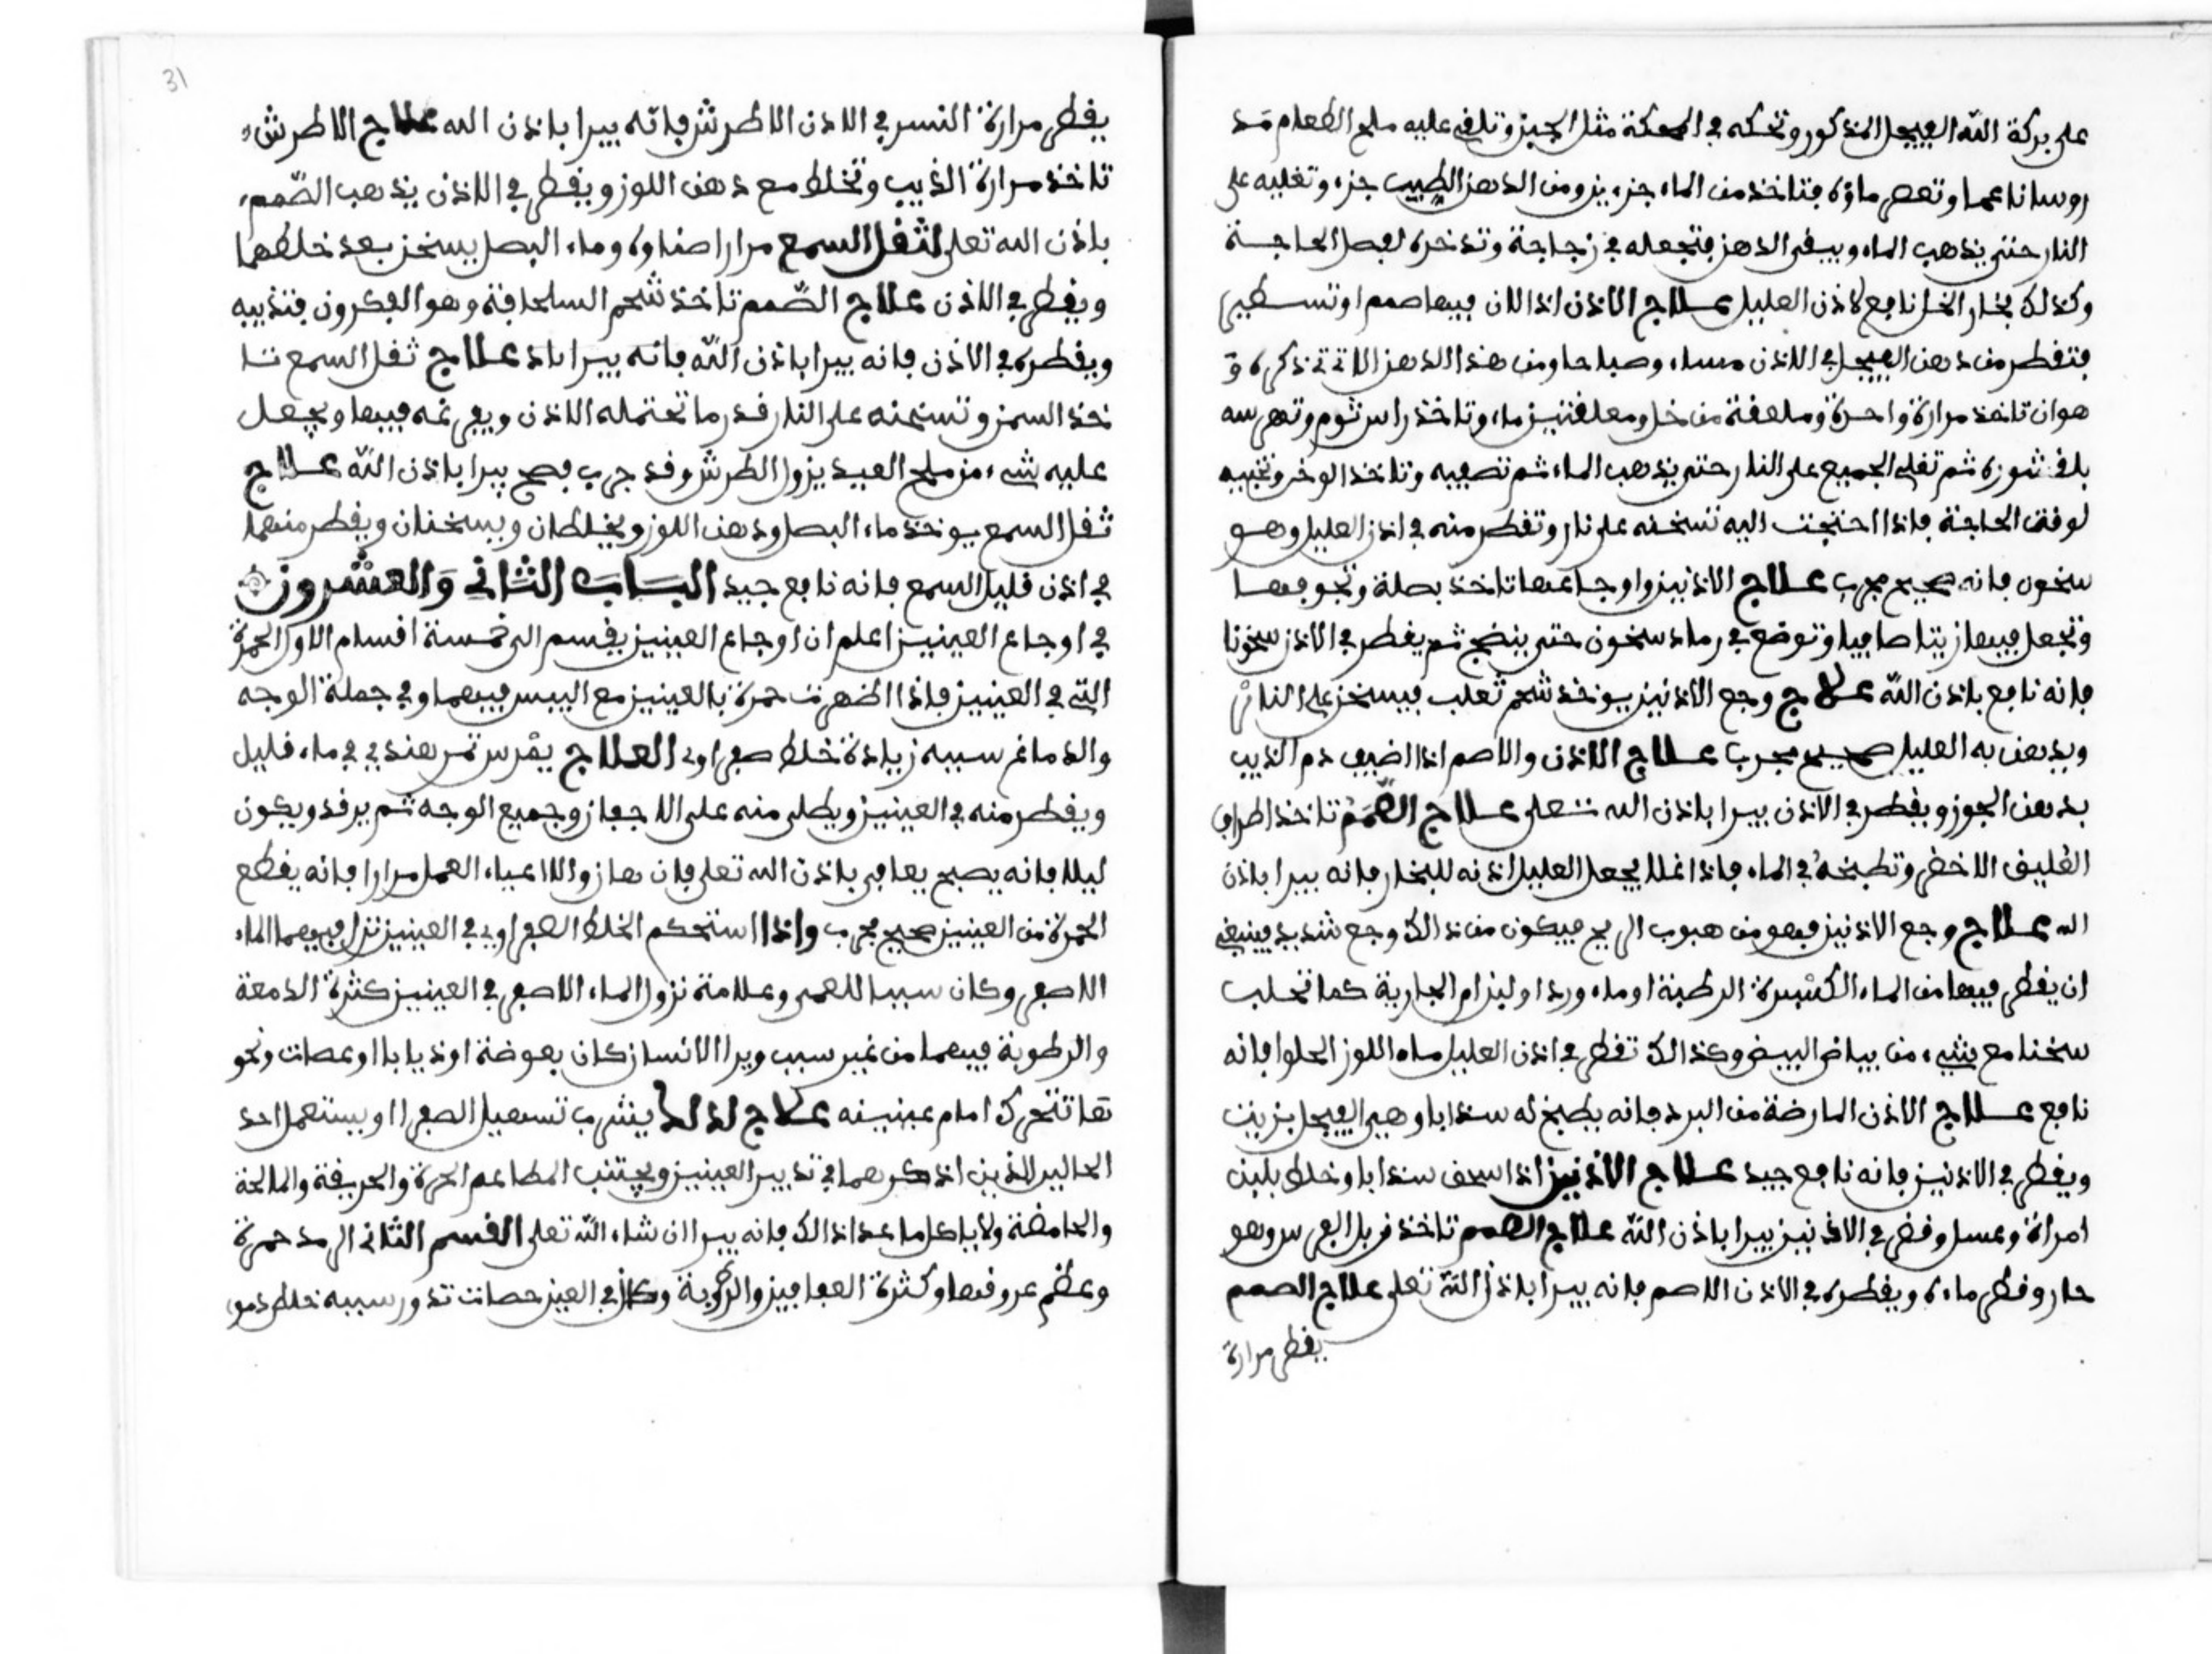 على بركة الله الفيجل المذكور وتحكه في المحكة مثل الجبز وتلقي عليه ملح الطعام مد
روسا ناعما وتعصر ماؤه فتاخذ من الماء جزءين ومن الدهن الطيب جزء وتغليه على
النار حتى يذهب الماء ويبقى الدهن فتجعله في زجاجة وتدخره لفصل الحاجة
وكذلك بخار الخل نافع لاذن العليل علاج الاذن اذا كان فيها صمم او تسطير
فتقطر من دهن الفيجل في الاذن مساء وصباحا ومن هذا الدهن الاتي نذكره و
هو ان تاخذ مرارة واحدة وملعقة من خل ومعلقتين ماء وتاخذ راس ثوم وتهرسه
بلقشوره ثم تغلي الجميع على النار حتى يذهب الماء ثم تصفيه وتاخذ الوخر وتخبيه
لوقت الحاجة فاذا احتجت اليه تسخنه على نار وتقطر منه في اذن العليل وهو
سخون فانه صحيح مجرب علاج الاذنين واوجاعها تاخذ بصلة وتجوفها
وتجعل فيها زيتا صافيا وتوضع في رماد سخون حتى ينضج ثم يقطر في الاذن سخونا
فانه نافع باذن الله علاج وجع الاذنين يوخذ شحم ثعلب فيسخن على النار
ويدهن به العليل صحيح مجرب علاج الاذن والاصم اذا اضيف دم الذيب
بدهن الجوز ويقطر في الاذن يبرا باذن الله تعلى علاج الصمم تاخذ اطراف
الغليف الاخضر وتطبخه في الماء فاذا غلا يجعل العليل اذنه للبخار فانه يبرا باذن
الله علاج وجع الاذنين فهو من هبوب الريح فيكون من ذالك وجع شديد فينبغي
ان يقطر فيها من الماء الكسبرة الرطبة او ماء ورد او لبن ام الجارية كما تحلب
سخنا مع شيء من بياض البيض وكذالك تقطر في اذن العليل ماء اللوز الحلوا فانه
نافع علاج الاذن المارضة من البرد فانه يطبخ له سندابا وهي الفيجل بزيت
ويقطر في الاذنين فانه نافع جيد علاج الاذنين اذا سحق سندابا وخلط بلبن
امراة وعسل وقطر في الاذنين يبرا باذن الله علاج الصمم تاخذ زبل الفرس وهو
حار وقطر ماءه ويقطره في الاذن الاصم فانه يبرا باذن الله تعلى علاج الصمم
يقطر مرارة
31
يقطر مرارة النسر في الاذن الاطرش فانه يبرا باذن الله علاج الاطرش
تاخذ مرارة الذيب وتخلط مع دهن اللوز ويقطر في الاذن يذهب الصمم
باذن الله تعلى لثقل السمع مرارا ضناوه وماء البصل يسخن بعد خلطهما
ويقطر في الاذن علاج الصمم تاخذ شحم السلحافة وهو الفكرون فتذيبه
ويقطره في الاذن فانه يبرا باذن الله فانه يبرا باذ علاج ثقل السمع تا
خذ السمن وتسخنه على النار قدر ما تحتمله الاذن ويفرغه فيها ويجعل
عليه شيء من ملح العبيد يزول الطرش وقد جرب فصح يبرا باذن الله علاج
ثقل السمع يوخذ ماء البصل ودهن اللوز ويخلطان ويسخنان ويقطر منهما
في اذن قليل السمع فانه نافع جيد الباب الثاني والعشرون
في اوجاع العينين اعلم ان اوجاع العينين يقسم الى خمسة اقسام الاول الحمرة
التي في العينين فاذا اظهرت حمرة بالعينين مع اليبس فيهما وفي جملة الوجه
والدماغ سببه زيادة خلط صفراوى العلاج يمرس تمر هندي في ماء قليل
ويقطر منه في العينين ويطلى منه على الاجفان وجميع الوجه ثم يرقد ويكون
ليلا فانه يصبح يعافى باذن الله تعلى فان هاز والااعياد العمل مرارا فانه يقطع
الحمرة من العينين صحيح مجرب واذا استحكم الخلط الصفراوي في العينين نزل فيهما الماء
الاصفر وكان سببا للعمى وعلامة نزول الماء الاصفر في العينين كثرة الدمعة
والرطوبة فيهما من غير سبب ويرا الانسان كان بعوضة او ذبابا او عصات ونحو
ها تتحرك امام عينينه علاج لذالك يشرب تسهيل الصفرا او يستعمل احد
الحالين الذين اذكرهما في تدبير العينين ويجتنب المطاعم الحرة والحريفة والمالحة
والحامضة ولا ياكل ما عدا ذالك فانه يبرا ان شاء الله تعلى القسم الثاني الرمد حمرة
وعظم عروقها وكثرة العفافيز والرطوبة وكان في العين حصات تدور سببه خلط دموي